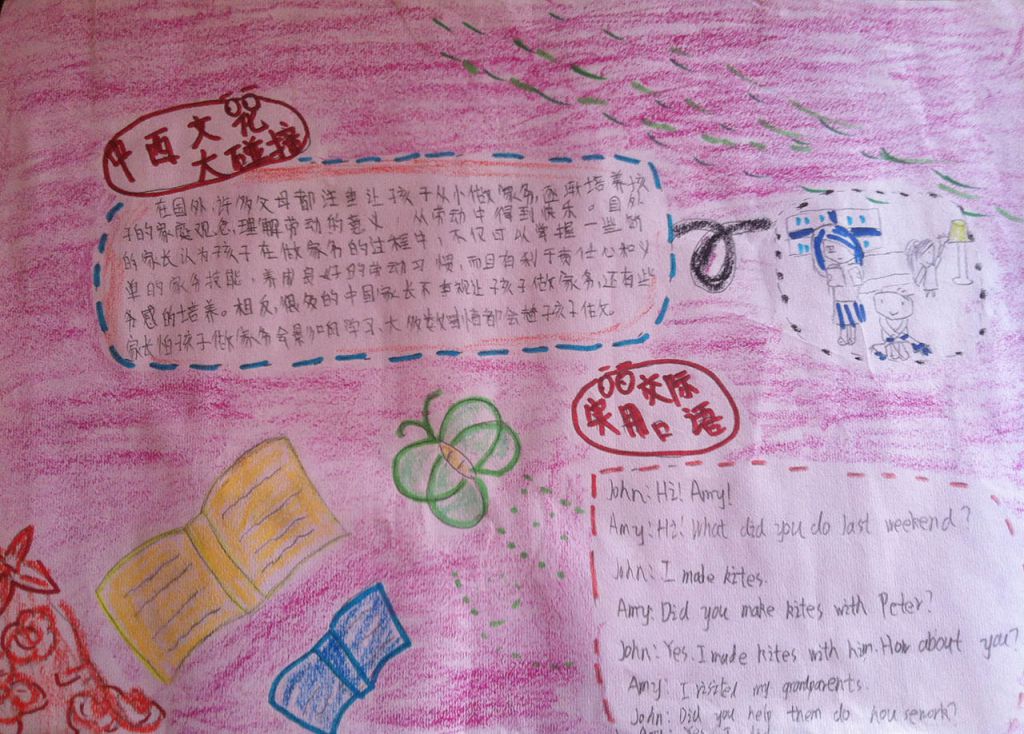 中西文化
大碰撞
在国外,许多父母都注重让孩子从小做家务,逐渐培养孩
子的家庭观念,理解劳动的意义 从劳动中得到快乐。国外
的家长认为孩子在做家务的过程中,不仅可以掌握一些简
单的家务技能,养成良好的劳动习惯,而且有利于责任心和义
务感的培养。相反,很多的中国家长不重视让孩子做家务,还有些
家长怕孩子做家务会影响学习,大多数事情都会替孩子做
交际
实用口语
John: Hi! Amy!
Amy: Hi! What did you do last weekend?
John: I made kites.
Amy: Did you make kites with Peter?
John: Yes. I made kites with him. How about you?
Amy: I visited my grandparents.
John: Did you help them do housework?
Amy: Yes, I did